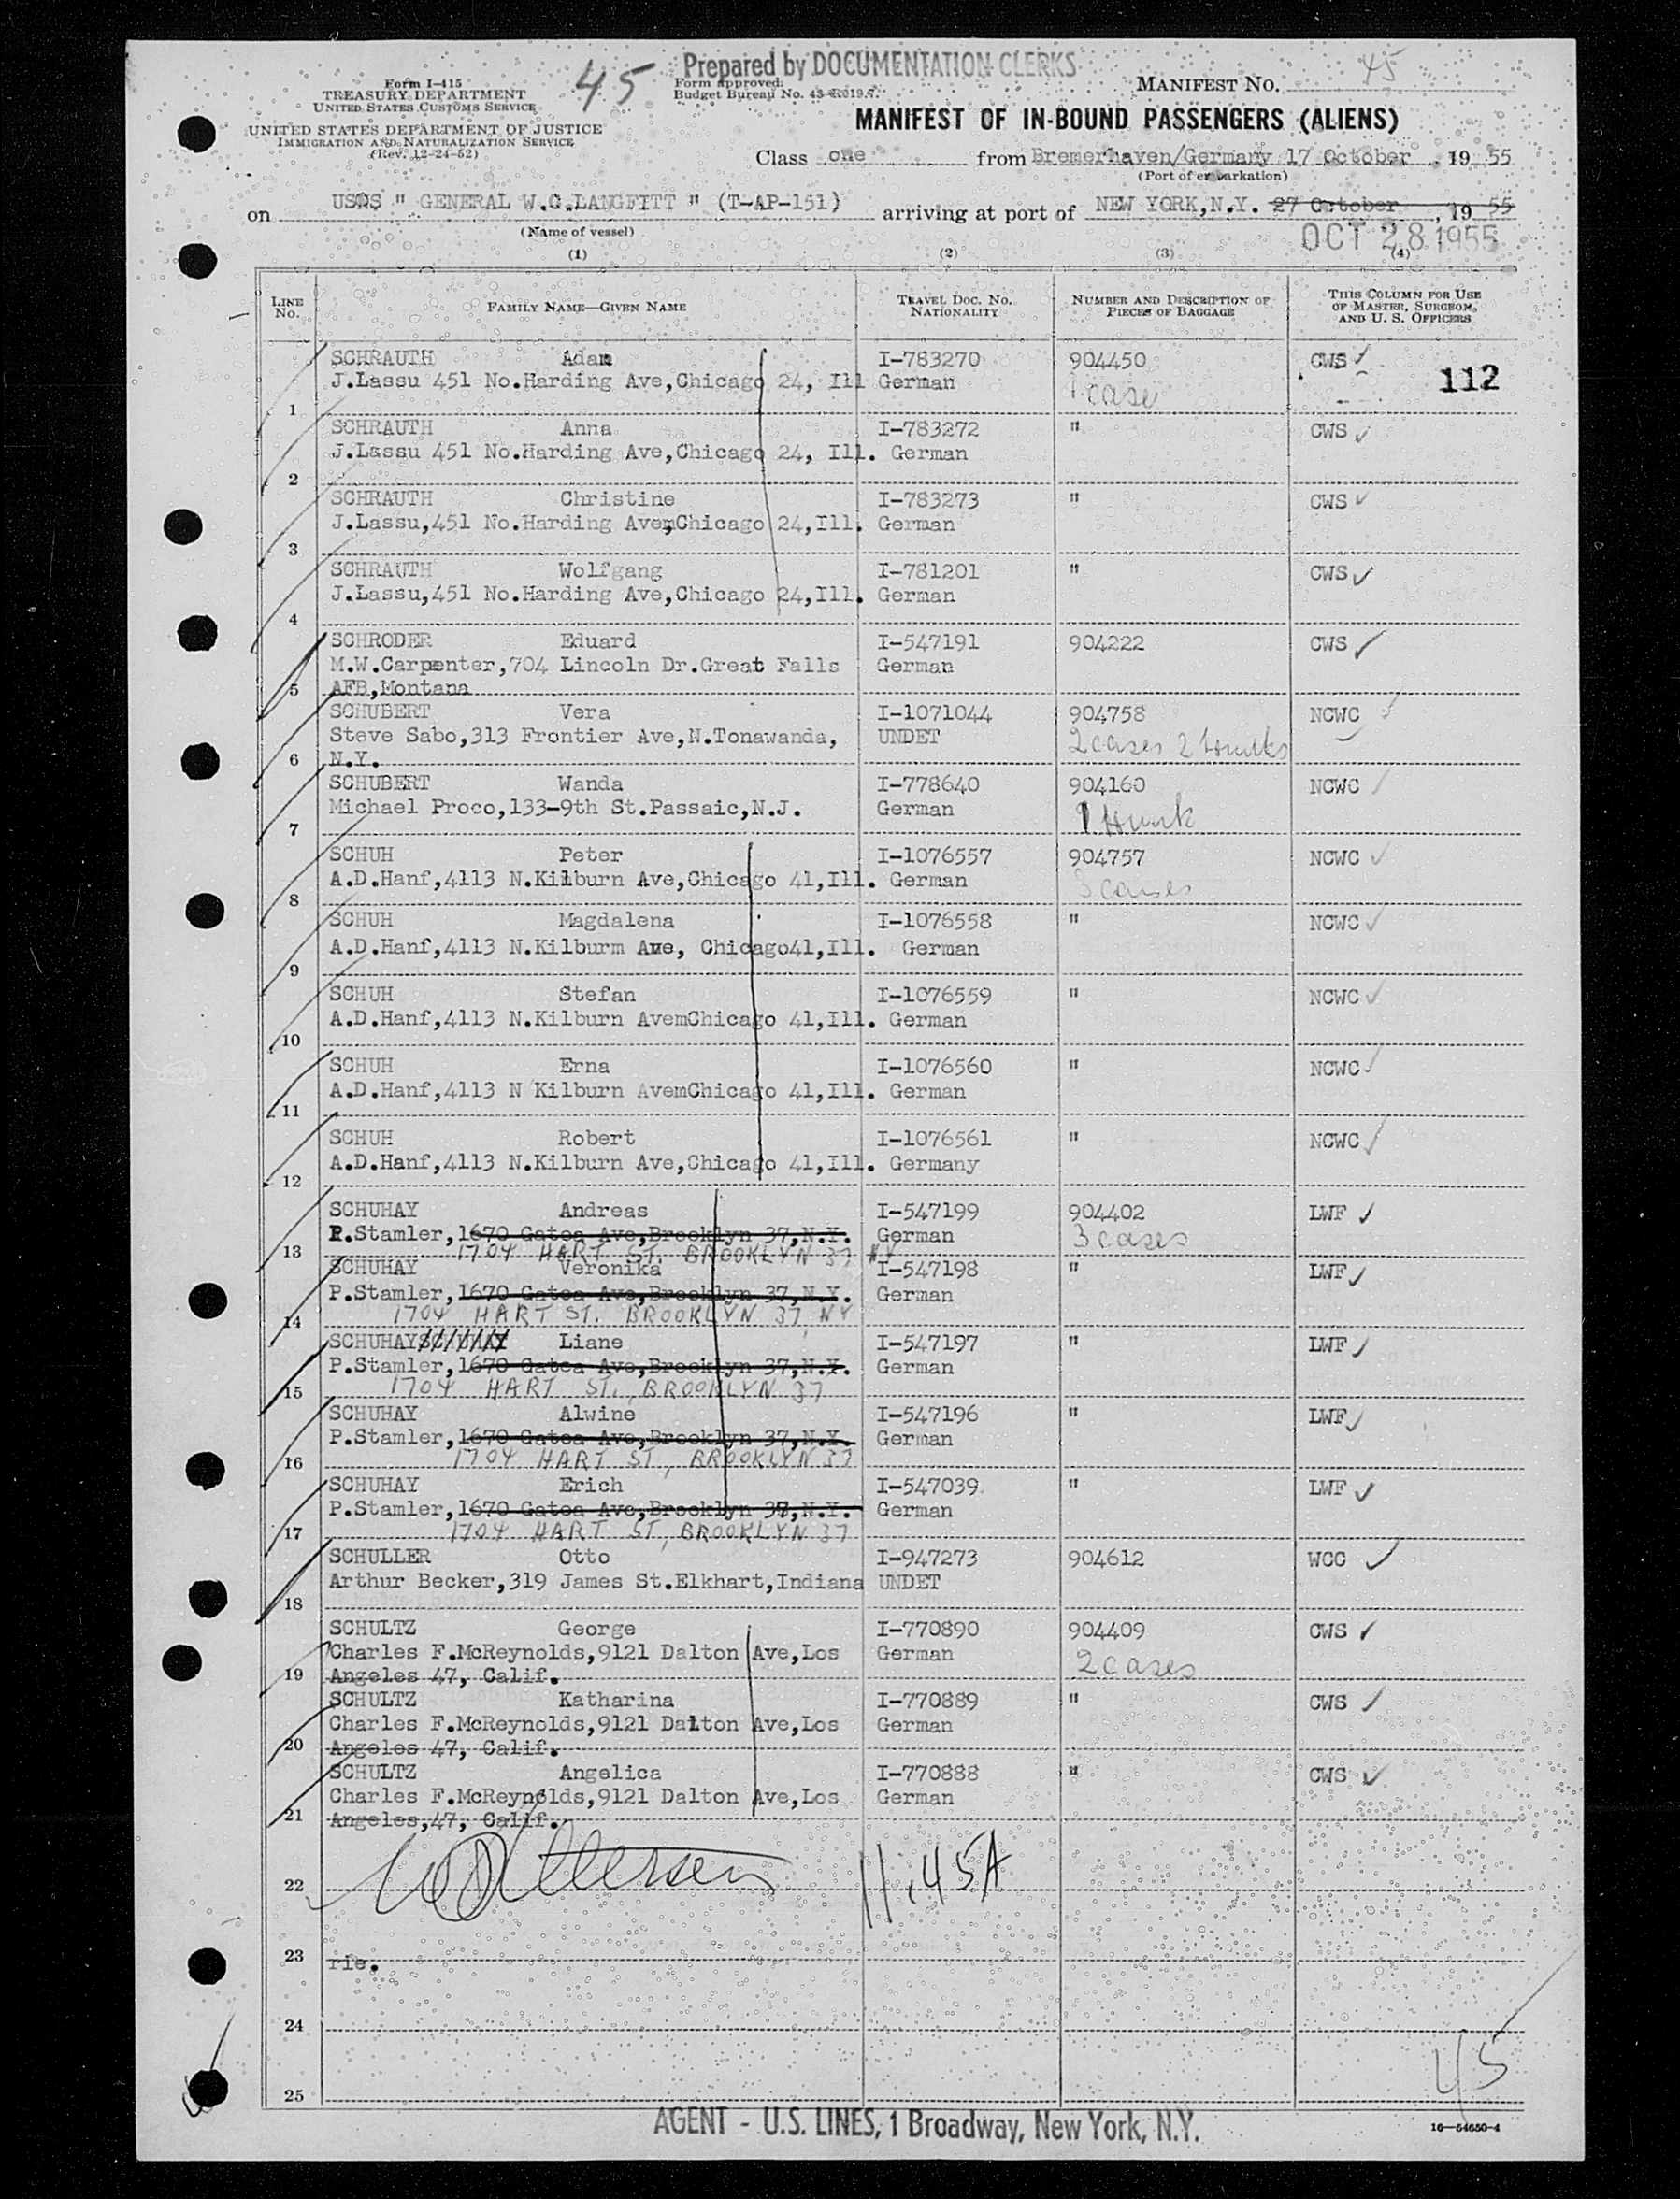 Prepared by DOCUMENTATION CLERKS
45
45
Form I-415
TREASURY DEPARTMENT
UNITED STATES CUSTOMS SERVICE
UNITED STATES DEPARTMENT OF JUSTICE
IMMIGRATION AND NATURALIZATION SERVICE
(Rev. 12-24-52)
Form approved.
Budget Bureau No. 43-R019.
MANIFEST NO.
MANIFEST OF IN-BOUND PASSENGERS (ALIENS)
Class one from Bremerhaven/Germany 17 October, 19 55
(Port of embarkation)
on USNS " GENERAL W.G.LANGFITT " (T-AP-151) arriving at port of NEW YORK,N.Y. 27 October, 19 55
(Name of vessel)
OCT 28 1955
(1) (2) (3) (4)
LINE NO. FAMILY NAME—GIVEN NAME TRAVEL DOC. NO. NATIONALITY NUMBER AND DESCRIPTION OF PIECES OF BAGGAGE THIS COLUMN FOR USE OF MASTER, SURGEON, AND U. S. OFFICERS
SCHRAUTH Adam I-783270 904450 CWS
J.Lassu 451 No.Harding Ave,Chicago 24, Ill German 1 case 112
1
SCHRAUTH Anna I-783272 " CWS
J.Lassu 451 No.Harding Ave,Chicago 24, Ill. German
2
SCHRAUTH Christine I-783273 " CWS
J.Lassu,451 No.Harding Avem,Chicago 24,Ill. German
3
SCHRAUTH Wolfgang I-781201 " CWS
J.Lassu,451 No.Harding Ave,Chicago 24,Ill. German
4
SCHRODER Eduard I-547191 904222 CWS
M.W.Carpenter,704 Lincoln Dr.Great Falls German
5 AFB,Montana
SCHUBERT Vera I-1071044 904758 NCWC
Steve Sabo,313 Frontier Ave,N.Tonawanda, UNDET 2 cases 2 trunks
6 N.Y.
SCHUBERT Wanda I-778640 904160 NCWC
Michael Proco,133-9th St.Passaic,N.J. German 1 trunk
7
SCHUH Peter I-1076557 904757 NCWC
A.D.Hanf,4113 N.Kilburn Ave,Chicago 41,Ill. German 3 cases
8
SCHUH Magdalena I-1076558 " NCWC
A.D.Hanf,4113 N.Kilburm Ave, Chicago41,Ill. German
9
SCHUH Stefan I-1076559 " NCWC
A.D.Hanf,4113 N.Kilburn AvemChicago 41,Ill. German
10
SCHUH Erna I-1076560 " NCWC
A.D.Hanf,4113 N Kilburn AvemChicago 41,Ill. German
11
SCHUH Robert I-1076561 " NCWC
A.D.Hanf,4113 N.Kilburn Ave,Chicago 41,Ill. Germany
12
SCHUHAY Andreas I-547199 904402 LWF
P.Stamler,1670 Gates Ave,Brooklyn 37,N.Y. German 3 cases
13 1704 HART ST. BROOKLYN 37 NY
SCHUHAY Veronika I-547198 " LWF
P.Stamler,1670 Gates Ave,Brooklyn 37,N.Y. German
14 1704 HART ST. BROOKLYN 37, NY
SCHUHAY SCHUHAY Liane I-547197 " LWF
P.Stamler,1670 Gates Ave,Brooklyn 37,N.Y. German
15 1704 HART ST., BROOKLYN 37
SCHUHAY Alwine I-547196 " LWF
P.Stamler,1670 Gates Ave,Brooklyn 37,N.Y. German
16 1704 HART ST, BROOKLYN 37
SCHUHAY Erich I-547039 " LWF
P.Stamler,1670 Gates Ave,Brooklyn 37,N.Y. German
17 1704 HART ST, BROOKLYN 37
SCHULLER Otto I-947273 904612 WCC
Arthur Becker,319 James St.Elkhart,Indiana UNDET
18
SCHULTZ George I-770890 904409 CWS
Charles F.McReynolds,9121 Dalton Ave,Los German 2 cases
19 Angeles 47, Calif.
SCHULTZ Katharina I-770889 " CWS
Charles F.McReynolds,9121 Dalton Ave,Los German
20 Angeles 47, Calif.
SCHULTZ Angelica I-770888 " CWS
Charles F.McReynolds,9121 Dalton Ave,Los German
21 Angeles,47, Calif.
22 11.45A
23 rie.
24
45
25
AGENT - U.S. LINES, 1 Broadway, New York, N.Y.
16—54650-4